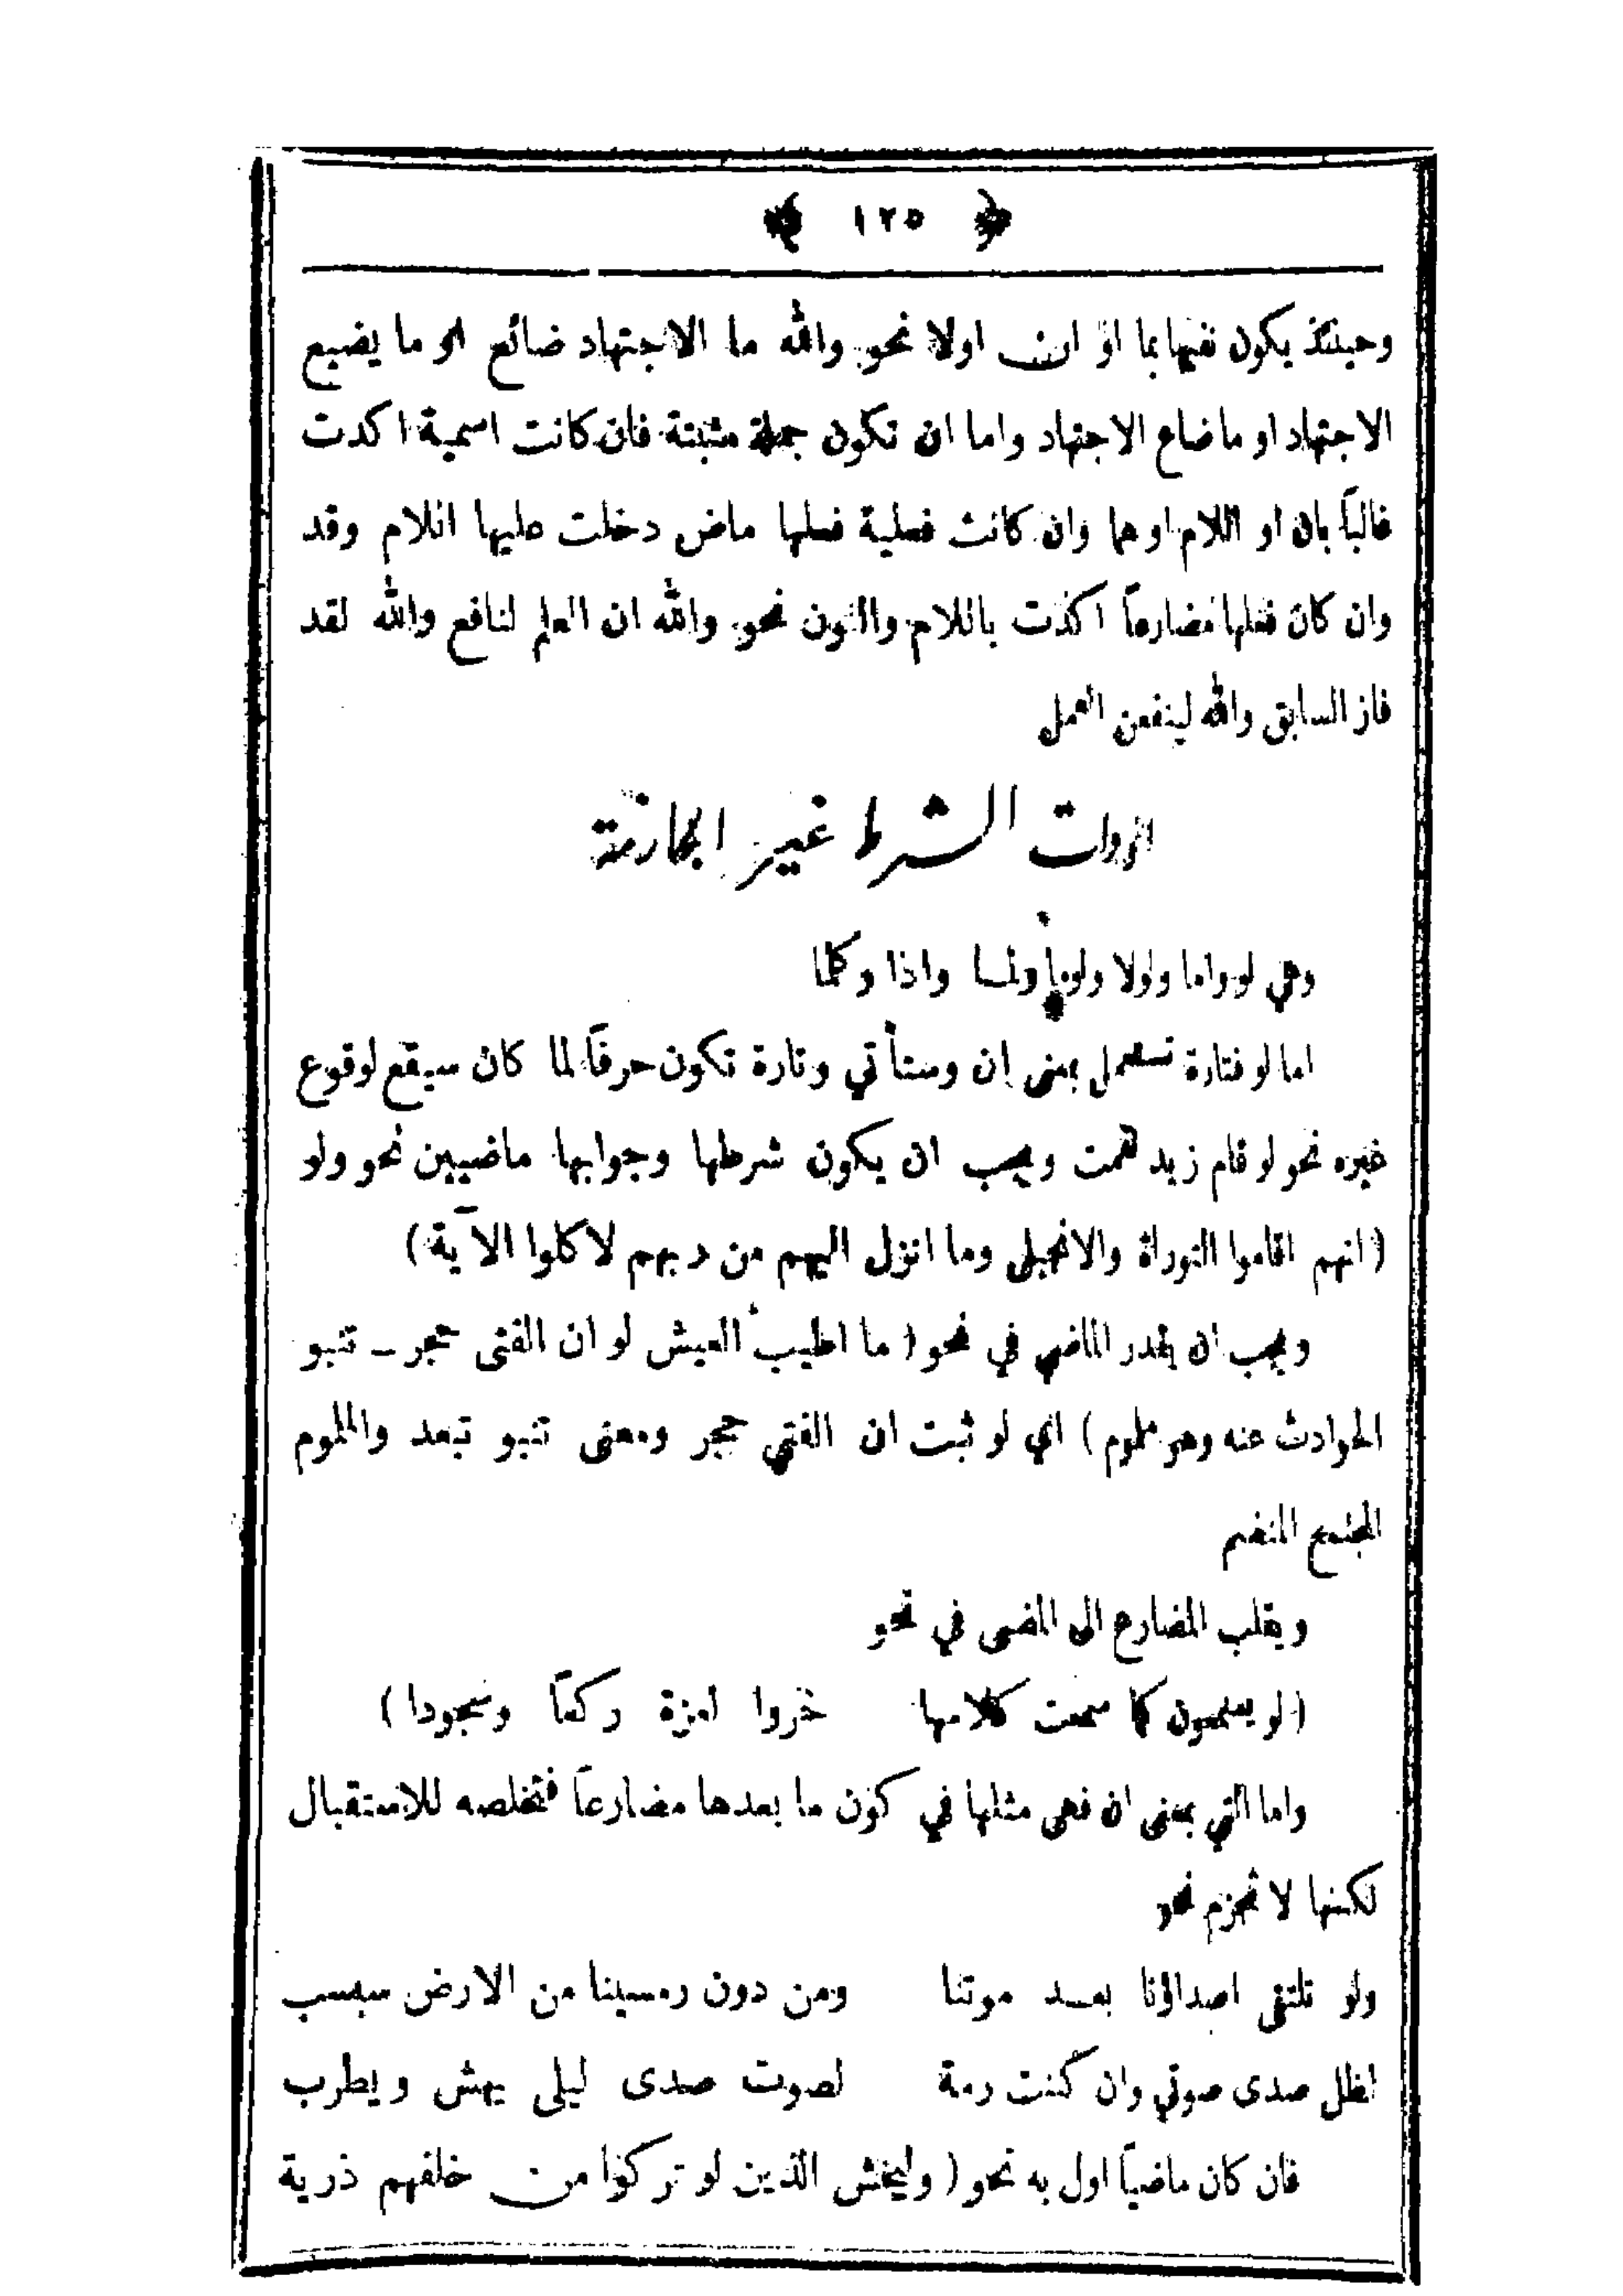 ﴿ ١٢٥ ﴾
وحينئذ يكون نفيها بما او ان اولا نحو والله ما الاجتهاد ضائع او ما يضيع
الاجتهاد او ما ضاع الاجتهاد واما ان تكون جملة مثبتة فان كانت اسمية اكدت
غالباً بان او اللام او هما وان كانت فعلية فعلها ماض دخلت عليها اللام وقد
وان كان فعلها مضارعاً اكدت باللام والنون نحو والله ان العلم لنافع والله لقد
فاز السابق والله لينفعن العمل
ادوات الشرط غير الجازمة
وهي لو واما ولولا ولوما ولما واذا وكلما
اما لو فتارة تستعمل بمعنى إن وستأتي وتارة تكون حرفاً لما كان سيقع لوقوع
غيره نحو لو قام زيد لقمت ويجب ان يكون شرطها وجوابها ماضيين نحو ولو
(انهم اقاموا التوراة والانجيل وما انزل اليهم من ربهم لاكلوا الآية)
ويجب ان يقدر الماضي في نحو (ما اطيب العيش لو ان الفتى حجر ـ تنبو
الحوادث عنه وهو ملموم) اي لو ثبت ان الفتى حجر ومعنى تنبو تبعد والملموم
المجتمع المنضم
ويقلب المضارع الى المضى في نحو
(لو يسمعون كما سمعت كلامها خروا لعزة ركعاً وسجودا)
واما التي بمعنى ان فهى مثلها في كون ما بعدها مضارعاً فتخلصه للاستقبال
لكنها لا تجزم نحو
ولو تلتقى اصداؤنا بعد موتنا ومن دون رمسينا من الارض سبسب
لظل صدى صوتي وان كنت رمة لصوت صدى ليلى يهش ويطرب
فان كان ماضياً اول به نحو (وليخش الذين لو تركوا من خلفهم ذرية